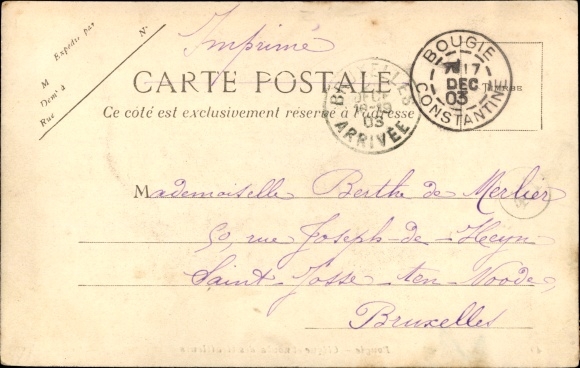 Nº
Expédié par
M
Demt à
Rue
Imprimé
CARTE POSTALE
Ce côté est exclusivement réservé à l'adresse
BOUGIE
17
DEC
03
CONSTANTINE
TIMBRE
BRUXELLES
DEC
03
ARRIVÉE
Mademoiselle Berthe de Merlier
59, rue Joseph-de-Heyn
Saint-Josse-ten-Noode,
Bruxelles